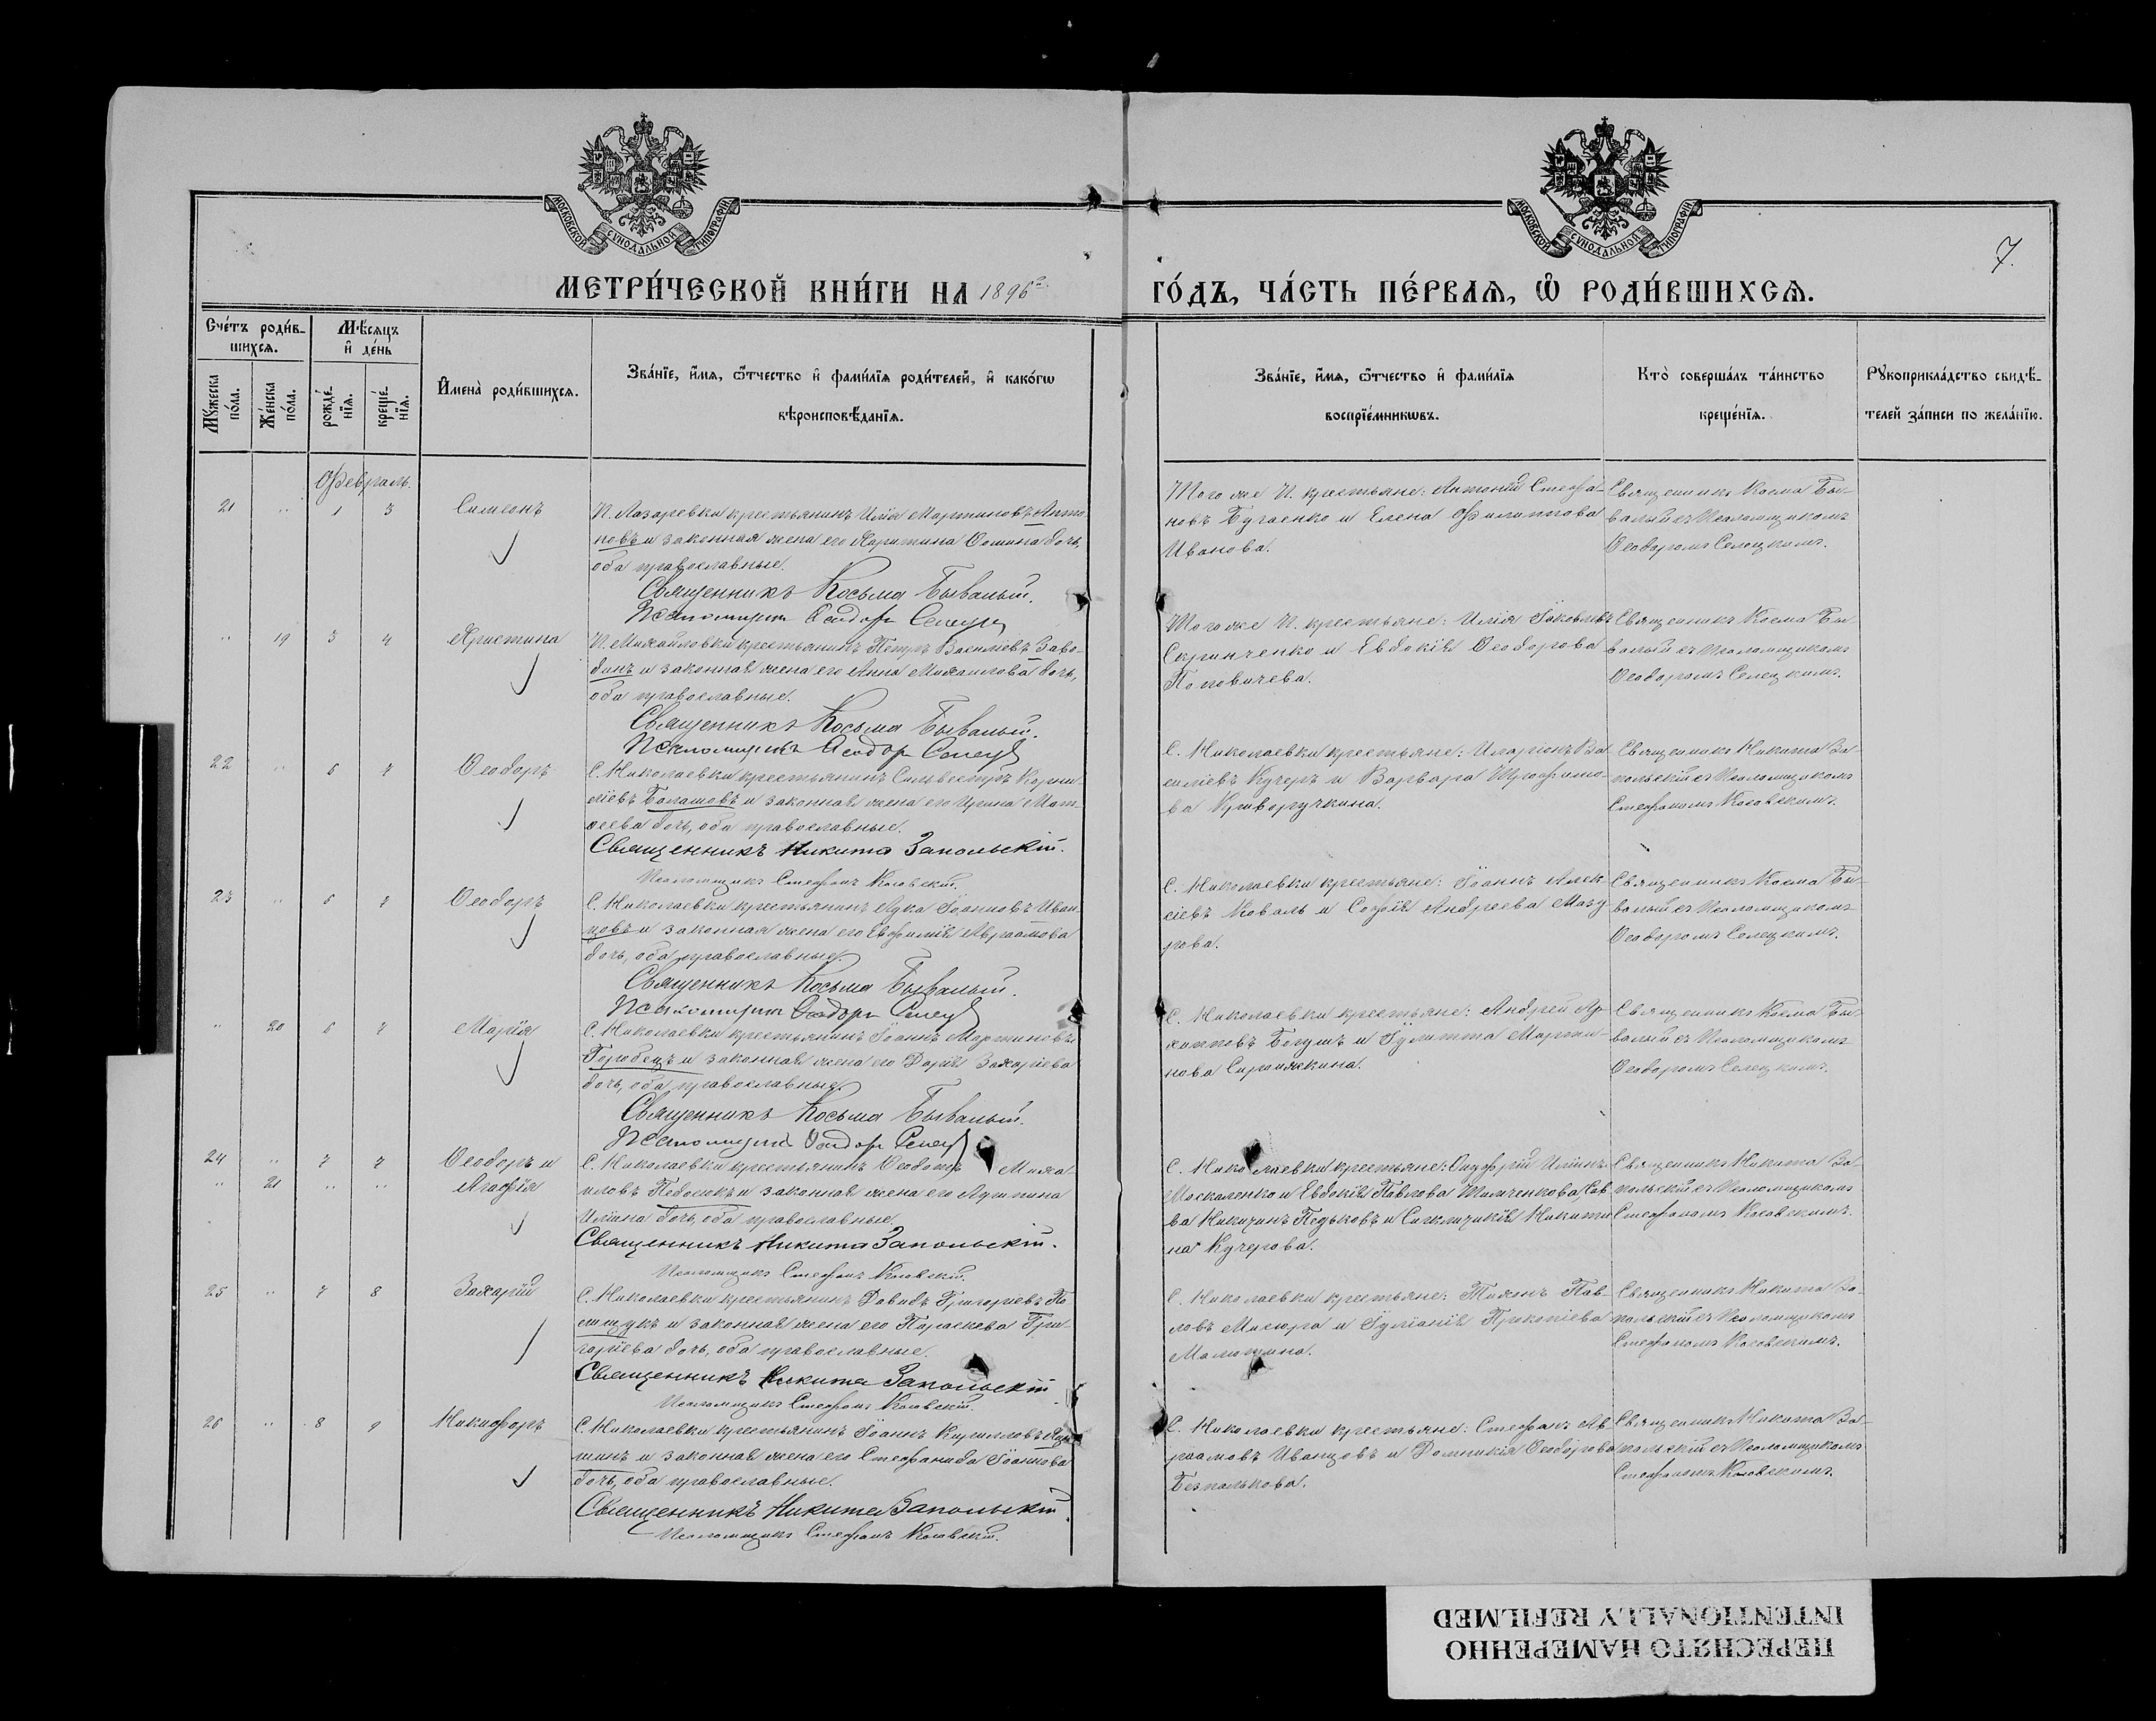 МОСКОВСКОЙ СѴНОДАЛЬНОЙ ТИПОГРАФІИ
МОСКОВСКОЙ СѴНОДАЛЬНОЙ ТИПОГРАФІИ
7.
МЕТРИ́ЧЕСКОЙ КНИ́ГИ НА 1896й
ГО́ДЪ, ЧА́СТЬ ПЕ́РВАѦ, Ѡ РОДИ́ВШИХСѦ.
Сче́тъ роди́в-
шихсѧ.
Мѣ́сѧцъ
и҆ де́нь
Мꙋ́жеска по́ла.
Же́нска по́ла.
рожде́нїѧ.
креще́нїѧ.
И҆мена̀ роди́вшихсѧ.
Зва́нїе, и҆́мѧ, ѻ҆́тчество и҆ фамѝлїѧ роди́телей, и҆ како́гѡ
вѣроисповѣ́данїѧ.
Зва́нїе, и҆́мѧ, ѻ҆́тчество и҆ фамѝлїѧ
воспрїе́мникѡвъ.
Кто̀ соверша́лъ та́инство
креще́нїѧ.
Рꙋкоприкла́дство свидѣ́-
телей за́писи по жела́нїю.
Февраль.
21 " 1 3 Симеонъ
П. Лазаревки крестьянинъ Илія Мартиновъ Анто-
новъ и законная жена его Харитина Ѳомина дочь,
оба православные.
Священникъ Косьма Бывалый.
Псаломщикъ Ѳеодоръ Селецкі
Того же П. крестьяне: Антоній Стефа-
новъ Бугаенко и Елена Филиппова
Иванова.
Священникъ Косма Бы-
валый съ Псаломщикомъ
Ѳеодоромъ Селецкимъ.
" 19 3 4 Христина
П. Михайловки крестьянинъ Петръ Васильевъ Заво-
динъ и законная жена его Анна Михаилова дочь,
оба православные.
Священникъ Косьма Бывалый.
Псаломщикъ Ѳеодоръ Селецкі
Того же П. крестьяне: Илія Іаковлевъ
Скринченко и Евдокія Ѳеодорова
Поповичева.
Священникъ Косма Бы-
валый съ Псаломщикомъ
Ѳеодоромъ Селецкимъ.
22 " 6 7 Ѳеодоръ
С. Николаевки крестьянинъ Сильвестръ Корни-
ліевъ Балашовъ и законная жена его Ирина Мат-
ѳеева дочь, оба православные.
Священникъ Никита Запольскій.
Псаломщикъ Стефанъ Косовскій.
С. Николаевки крестьяне: Иларіонъ Ва-
силіевъ Кучеръ и Варвара Трофимо-
ва Криворучкина.
Священникъ Никита За-
польскій съ Псаломщикомъ
Стефаномъ Косовскимъ.
23 " 6 7 Ѳеодоръ
С. Николаевки крестьянинъ Лука Іоанновъ Иван-
цовъ и законная жена его Евфимія Авраамова
дочь, оба православные.
Священникъ Косьма Бывалый.
Псаломщикъ Ѳеодоръ Селецкі
С. Николаевки крестьяне: Іоаннъ Алек-
сіевъ Коваль и Софія Андреева Мазу-
рова.
Священникъ Косма Бы-
валый съ Псаломщикомъ
Ѳеодоромъ Селецкимъ.
" 20 6 7 Марія
С. Николаевки крестьянинъ Іоаннъ Мартиновъ
Горобецъ и законная жена его Дарія Захаріева
дочь, оба православные.
Священникъ Косьма Бывалый.
Псаломщикъ Ѳеодоръ Селецкі
С. Николаевки крестьяне: Андрей Ар-
хипповъ Богушъ и Іулитта Марти-
нова
Священникъ Косма Бы-
валый съ Псаломщикомъ
Ѳеодоромъ Селецкимъ.
24 " 7 7 Ѳеодоръ и
" 21 " " Агафія
С. Николаевки крестьянинъ Ѳеодотъ Миха-
иловъ и законная жена его
Иліина дочь, оба православные.
Священникъ Никита Запольскій.
Псаломщикъ Стефанъ Косовскій.
С. Николаевки крестьяне: Онуфрій Иліинъ
Москаленко и Евдокія Павлова Сав-
ва Никитинъ и Синклитикія Никити-
на Кучерова.
Священникъ Никита За-
польскій съ Псаломщикомъ
Стефаномъ Косовскимъ.
25 " 7 8 Захарій
С. Николаевки крестьянинъ Давидъ Григоріевъ По-
лищукъ и законная жена его Параскева Гри-
горіева дочь, оба православные.
Священникъ Никита Запольскій
Псаломщикъ Стефанъ Косовскій.
С. Николаевки крестьяне: Тихонъ Пав-
ловъ Мисюра и Іуліанія Прокопіева
Священникъ Никита За-
польскій съ Псаломщикомъ
Стефаномъ Косовскимъ.
26 " 8 9 Никифоръ
С. Николаевки крестьянинъ Іоаннъ Кирилловъ
и законная жена его Стефанида Іоаннова
дочь, оба православные.
Священникъ Никита Запольскій.
Псаломщикъ Стефанъ Косовскій.
С. Николаевки крестьяне: Стефанъ Ав-
раамовъ Иванцовъ и Домникія Ѳеодорова
Безпалькова.
Священникъ Никита За-
польскій съ Псаломщикомъ
Стефаномъ Косовскимъ.
ПЕРЕСНЯТО НАМЕРЕННО
INTENTIONALLY REFILMED